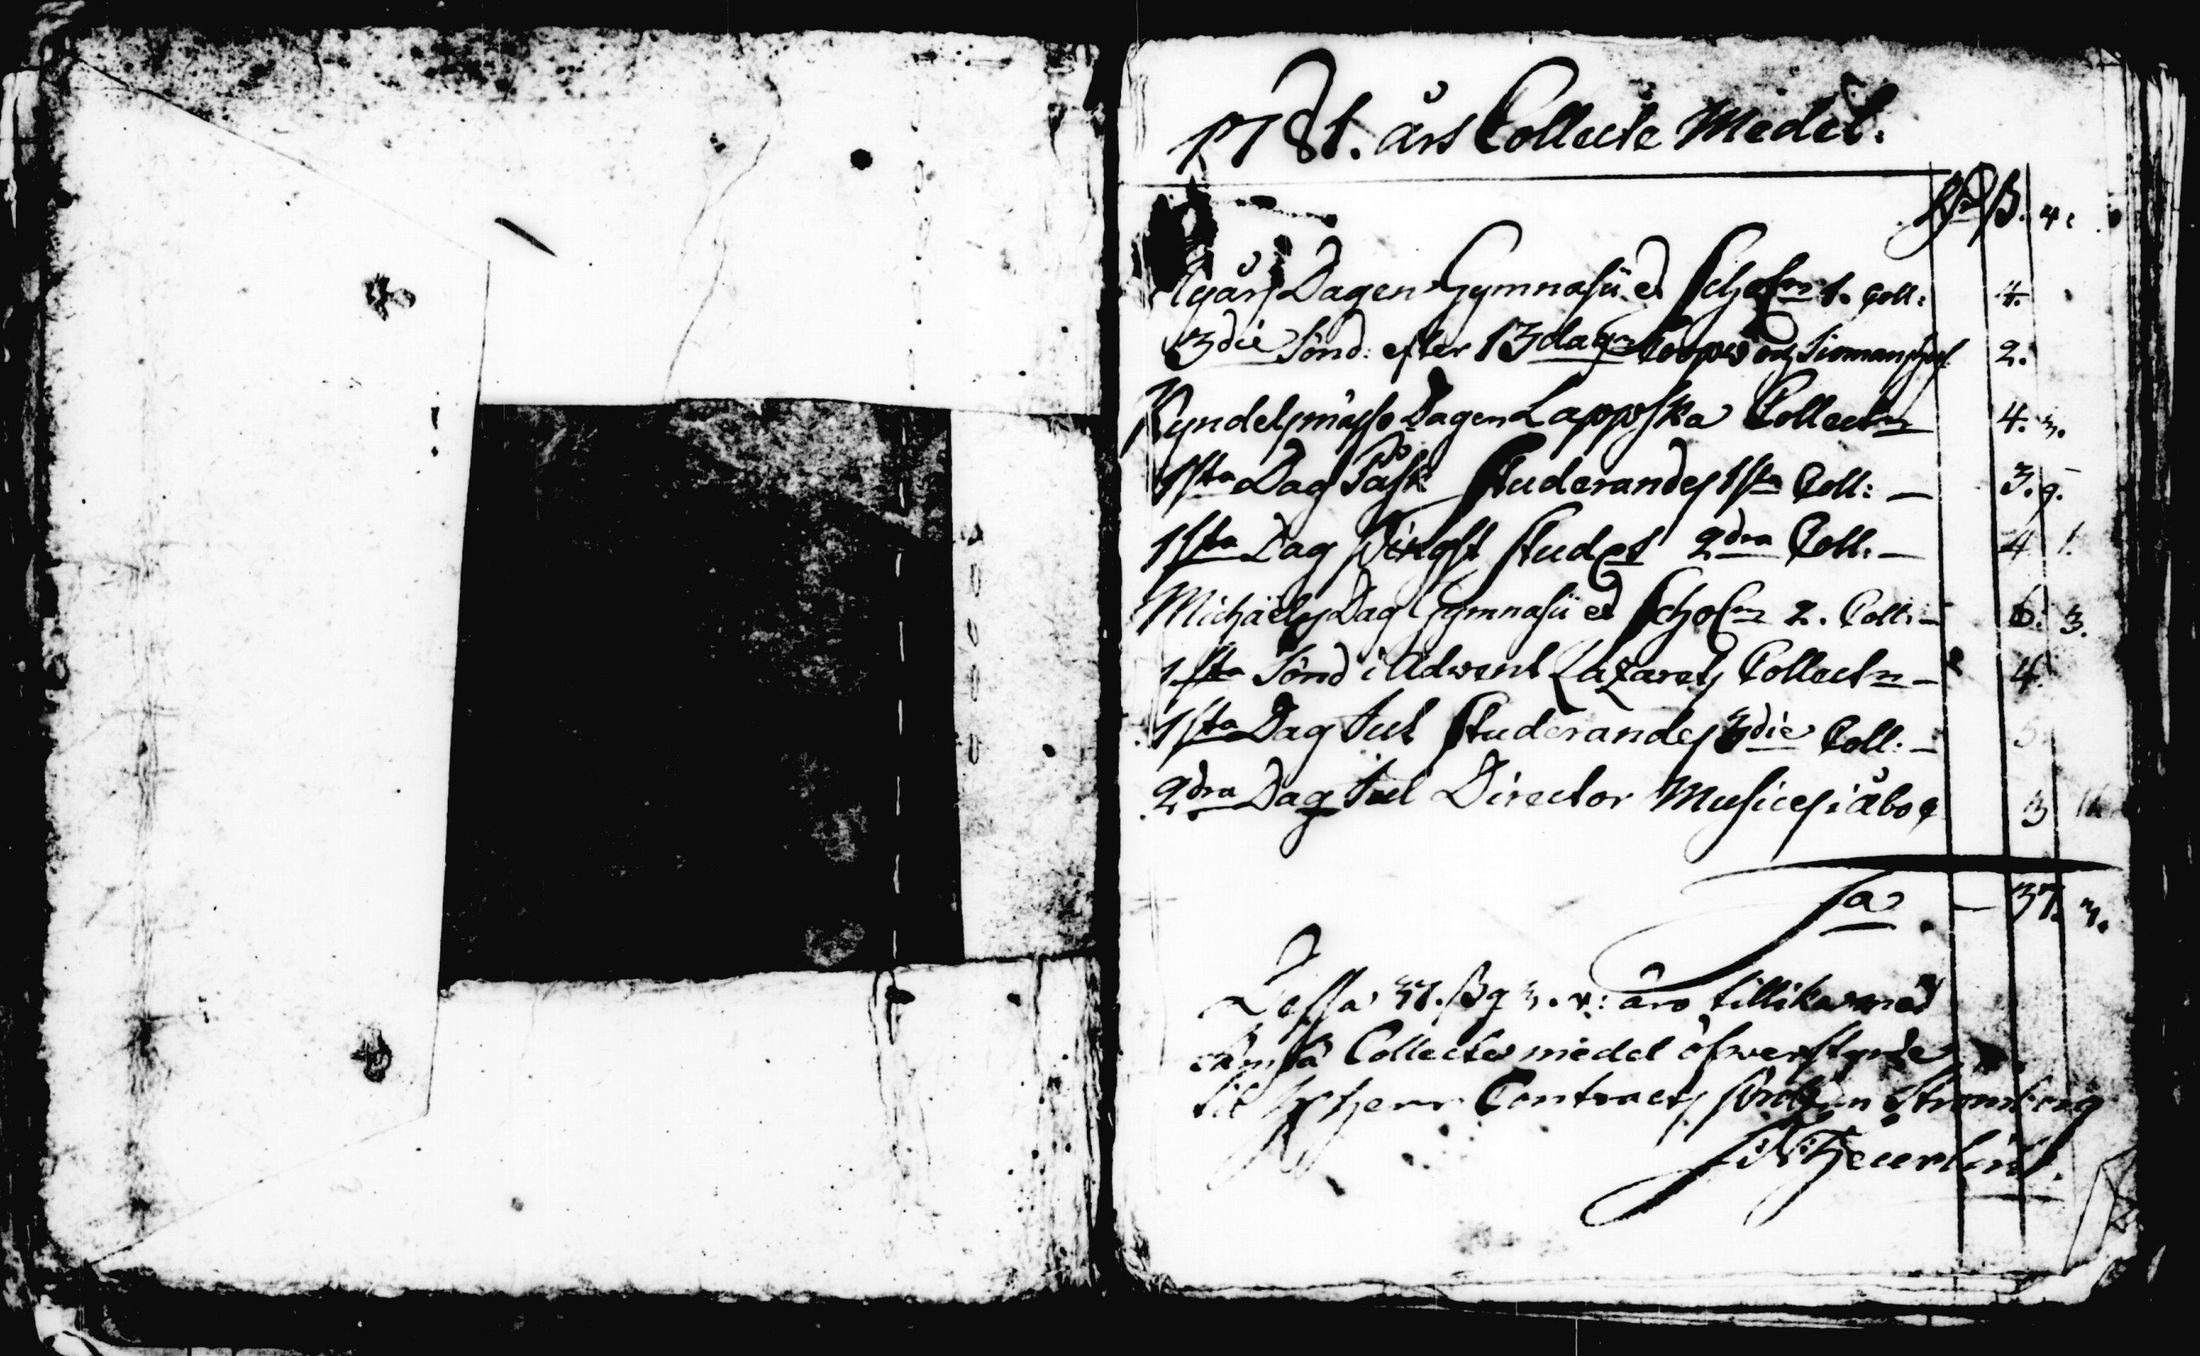 1781. års Collecte Medel.
Rd ß. r:
Nyårs Dagen Gymnasii et Schol. 1. Coll: 4.
3die Sönd: efter 13 dag 2.
Kyndelsmässo Dagen Lappska Collecten 4. 3.
1sta Dag Påsk Studerandes 1sta Coll: — 3. 9.
1sta Dag Pingst Studes 2dra Coll: — 4 1.
Michaels Dag Gymnasii et Schol. 2. Coll: — 6. 3.
1sta Sönd i Advent Lazarets Collecten — 4.
1sta Dag Jul Studerandes 3die Coll: — 5.
2dra Dag Jul Director Musices i åbo 3
Sa — 37. 3.
Dessa 37. ßg 3. r: äro tillika med
Collecte medel öfwerstyrde
til Herr Contracts Prosten Stromborg